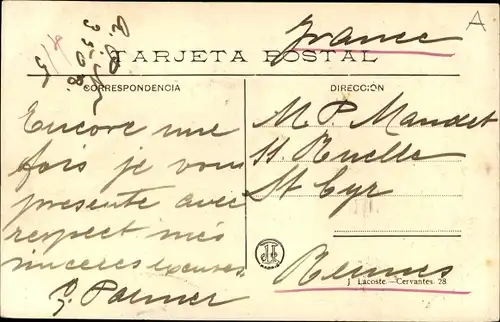 France
A
TARJETA POSTAL
CORRESPONDENCIA
DIRECCION
Encore une
fois je vous
presente avec
respect mes
sinceres excuses
G. Palmer
M. P. Mandet
11. Ruelle
St Cyr
Rennes
MADRID
J. Lacoste—Cervantes. 28